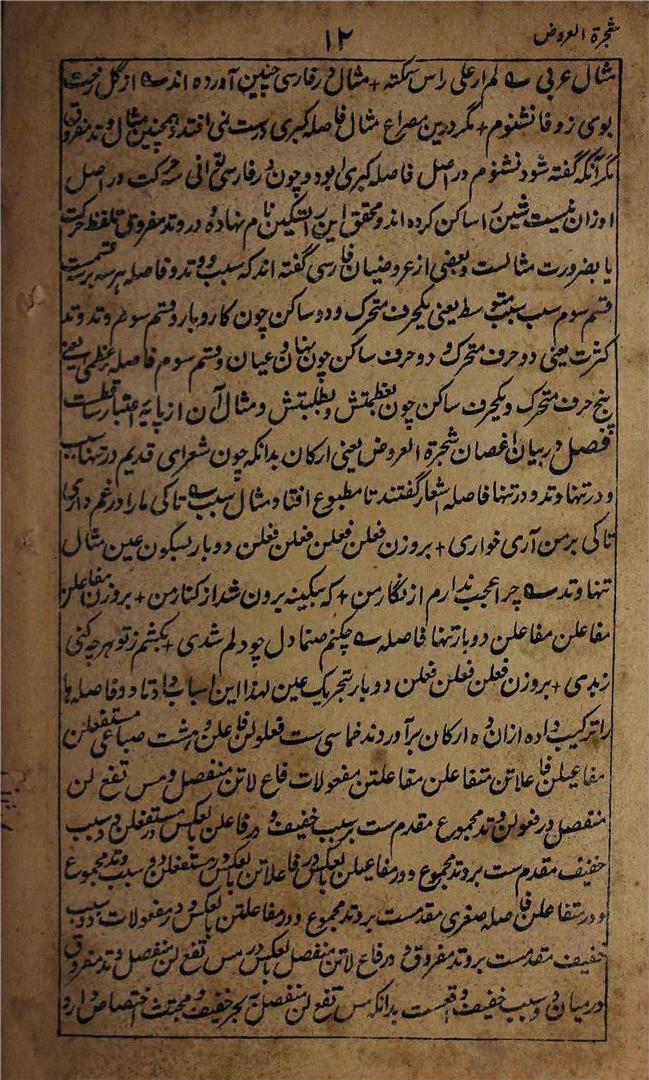 شجرة العروض
۱۲
مثال عربی ے لم ار علی راس سمکة + مثال در فارسی چنین آورده اند ے از گل رخت
بوی زوفا نشنوم + مگر درین مصراع مثال فاصله کبری درست نمی افتد و همچنین مثال وتد مفروق
مگر آنکه گفته شود نشنوم در اصل فاصله کبری بود و چون در فارسی توالی سه حرکت در اصل
اوزان نیست شین را ساکن کرده اند و محقق این را تسکین نام نهاده و در وتد مفروق تلفظ حرکت
یا بضرورت مثالست و بعضی از عروضیان فارسی گفته اند که سبب و وتد و فاصله هر سه بر سه قسمت
قسم سوم سبب سبب متوسط یعنی یکحرف متحرک و دو ساکن چون کار و یار و قسم سوم وتد وتد
کثرت یعنی دو حرف متحرک و دو حرف ساکن چون نهان و عیان و قسم سوم فاصله عظمی یعنی
پنج حرف متحرک و یکحرف ساکن چون بعظمتش و بطلبتش و مثال آن از پایه اعتبار ساقطست
فصل در بیان اغصان شجرة العروض یعنی ارکان بدانکه چون شعرای قدیم در تنها سبب
و در تنها وتد و در تنها فاصله اشعار گفتند تا مطبوع افتاد مثال سبب ے تا کی ما را در غم داری
تا کی بر من آری خواری + بروزن فعلن فعلن فعلن فعلن دوبار بسکون عین مثال
تنها وتد ے چرا عجب ندارم از نگار من + که بیکینه برون شد از کنار من + بروزن مفاعلن
مفاعلن مفاعلن دوبار تنها فاصله ے چکنم صنما دل چو دلم شدی + بکشم ز تو هر چه کنی
ز بدی + بروزن فعلن فعلن فعلن دوبار بتحریک عین لهذا این اسباب و اوتاد و فاصله ها
را ترکیب داده ازان ده ارکان برآوردند خماسی ست فعولن فاعلن و هشت سباعی مستفعلن
مفاعیلن فاعلاتن متفاعلن مفاعلتن مفعولات فاع لاتن منفصل و مس تفع لن
منفصل در فعولن وتد مجموع مقدم ست بر سبب خفیف و در فاعلن بالعکس در مستفعلن دو سبب
خفیف مقدم ست بر وتد مجموع و در مفاعیلن بالعکس در فاعلاتن بالعکس در مستفعلن دو سبب وتد مجموع
و در متفاعلن فاصله صغری مقدمست بر وتد مجموع و در مفاعلتن بالعکس و در مفعولات دو سبب
خفیف مقدمست بر وتد مفروق و در فاع لاتن منفصل بالعکس در مس تفع لن منفصل وتد مفروق
در میان دو سبب خفیف واقعست بدانکه مس تفع لن منفصل به بحر خفیف و مجتث اختصاص دارد